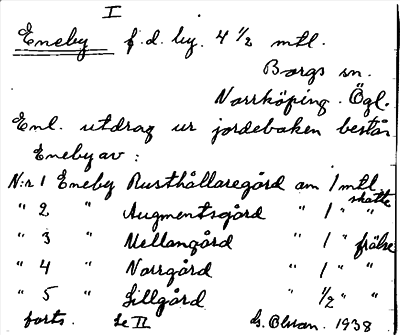 I
Eneby f.d. by. 4 1/2 mtl.
Borgs sn.
Norrköping. Ögl.
Enl. utdrag ur jordeboken består
Eneby av:
N:r 1 Eneby Rusthållaregård om 1 mtl skatte
" 2 " Augmentsgård " 1 " "
" 3 " Mellangård " 1 " frälse
" 4 " Norrgård " 1 " "
" 5 " Lillgård " 1/2 " "
forts. Se II G. Olsson. 1938